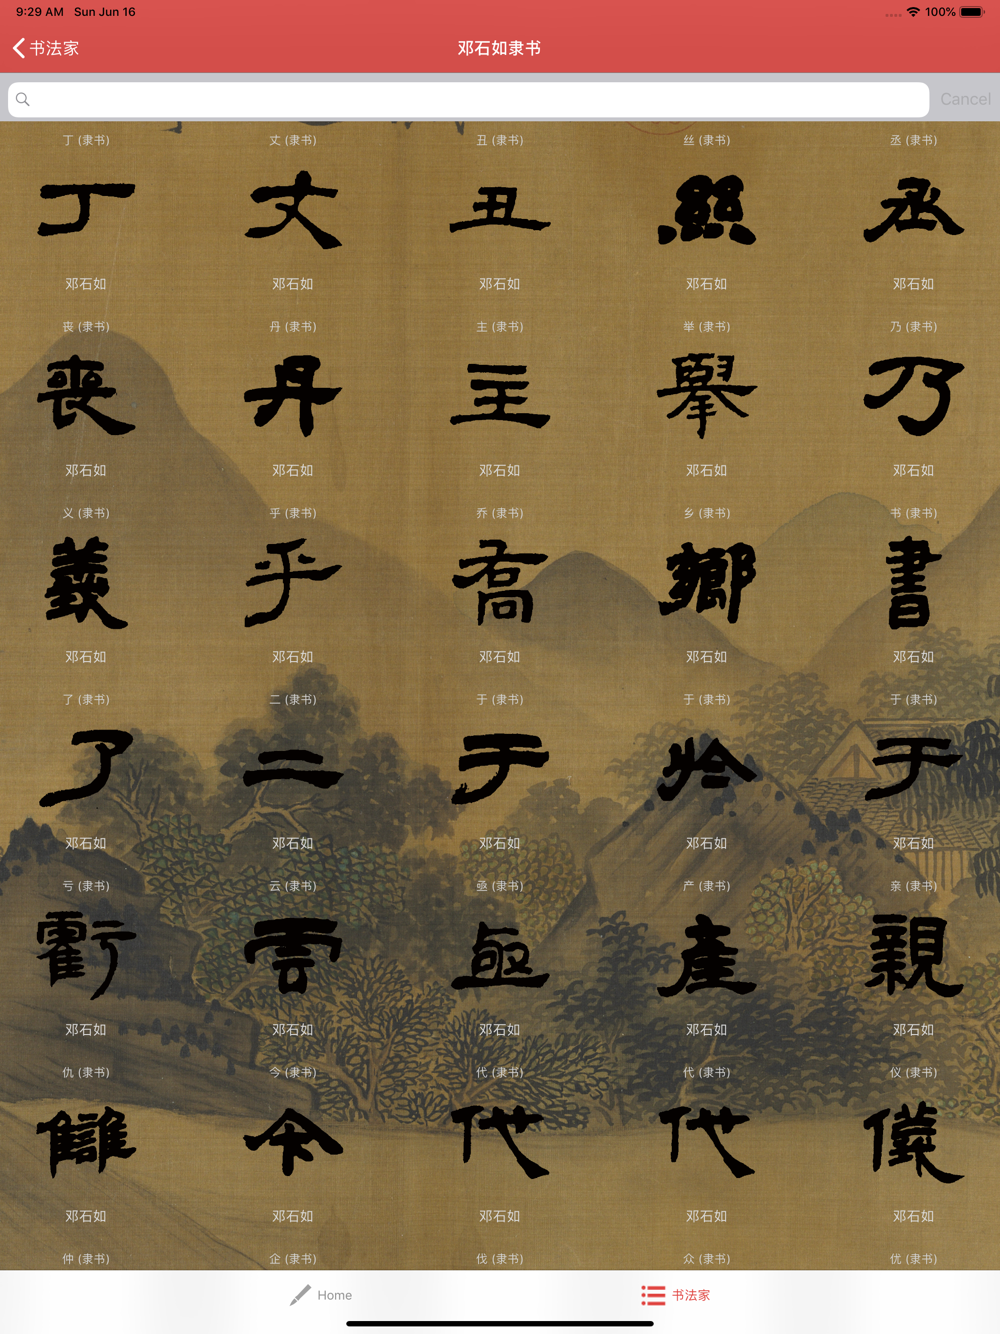 9:29 AM Sun Jun 16 100%
书法家 邓石如隶书
Cancel
丁 (隶书) 丈 (隶书) 丑 (隶书) 丝 (隶书) 丞 (隶书)
丁 丈 丑 絲 丞
邓石如 邓石如 邓石如 邓石如 邓石如
丧 (隶书) 丹 (隶书) 主 (隶书) 举 (隶书) 乃 (隶书)
喪 丹 主 舉 乃
邓石如 邓石如 邓石如 邓石如 邓石如
义 (隶书) 乎 (隶书) 乔 (隶书) 乡 (隶书) 书 (隶书)
義 乎 喬 鄉 書
邓石如 邓石如 邓石如 邓石如 邓石如
了 (隶书) 二 (隶书) 于 (隶书) 于 (隶书) 于 (隶书)
了 二 于 於 于
邓石如 邓石如 邓石如 邓石如 邓石如
亏 (隶书) 云 (隶书) 亟 (隶书) 产 (隶书) 亲 (隶书)
虧 雲 亟 產 親
邓石如 邓石如 邓石如 邓石如 邓石如
仇 (隶书) 今 (隶书) 代 (隶书) 代 (隶书) 仪 (隶书)
讎 今 代 代 儀
邓石如 邓石如 邓石如 邓石如 邓石如
仲 (隶书) 企 (隶书) 伐 (隶书) 众 (隶书) 优 (隶书)
Home 书法家